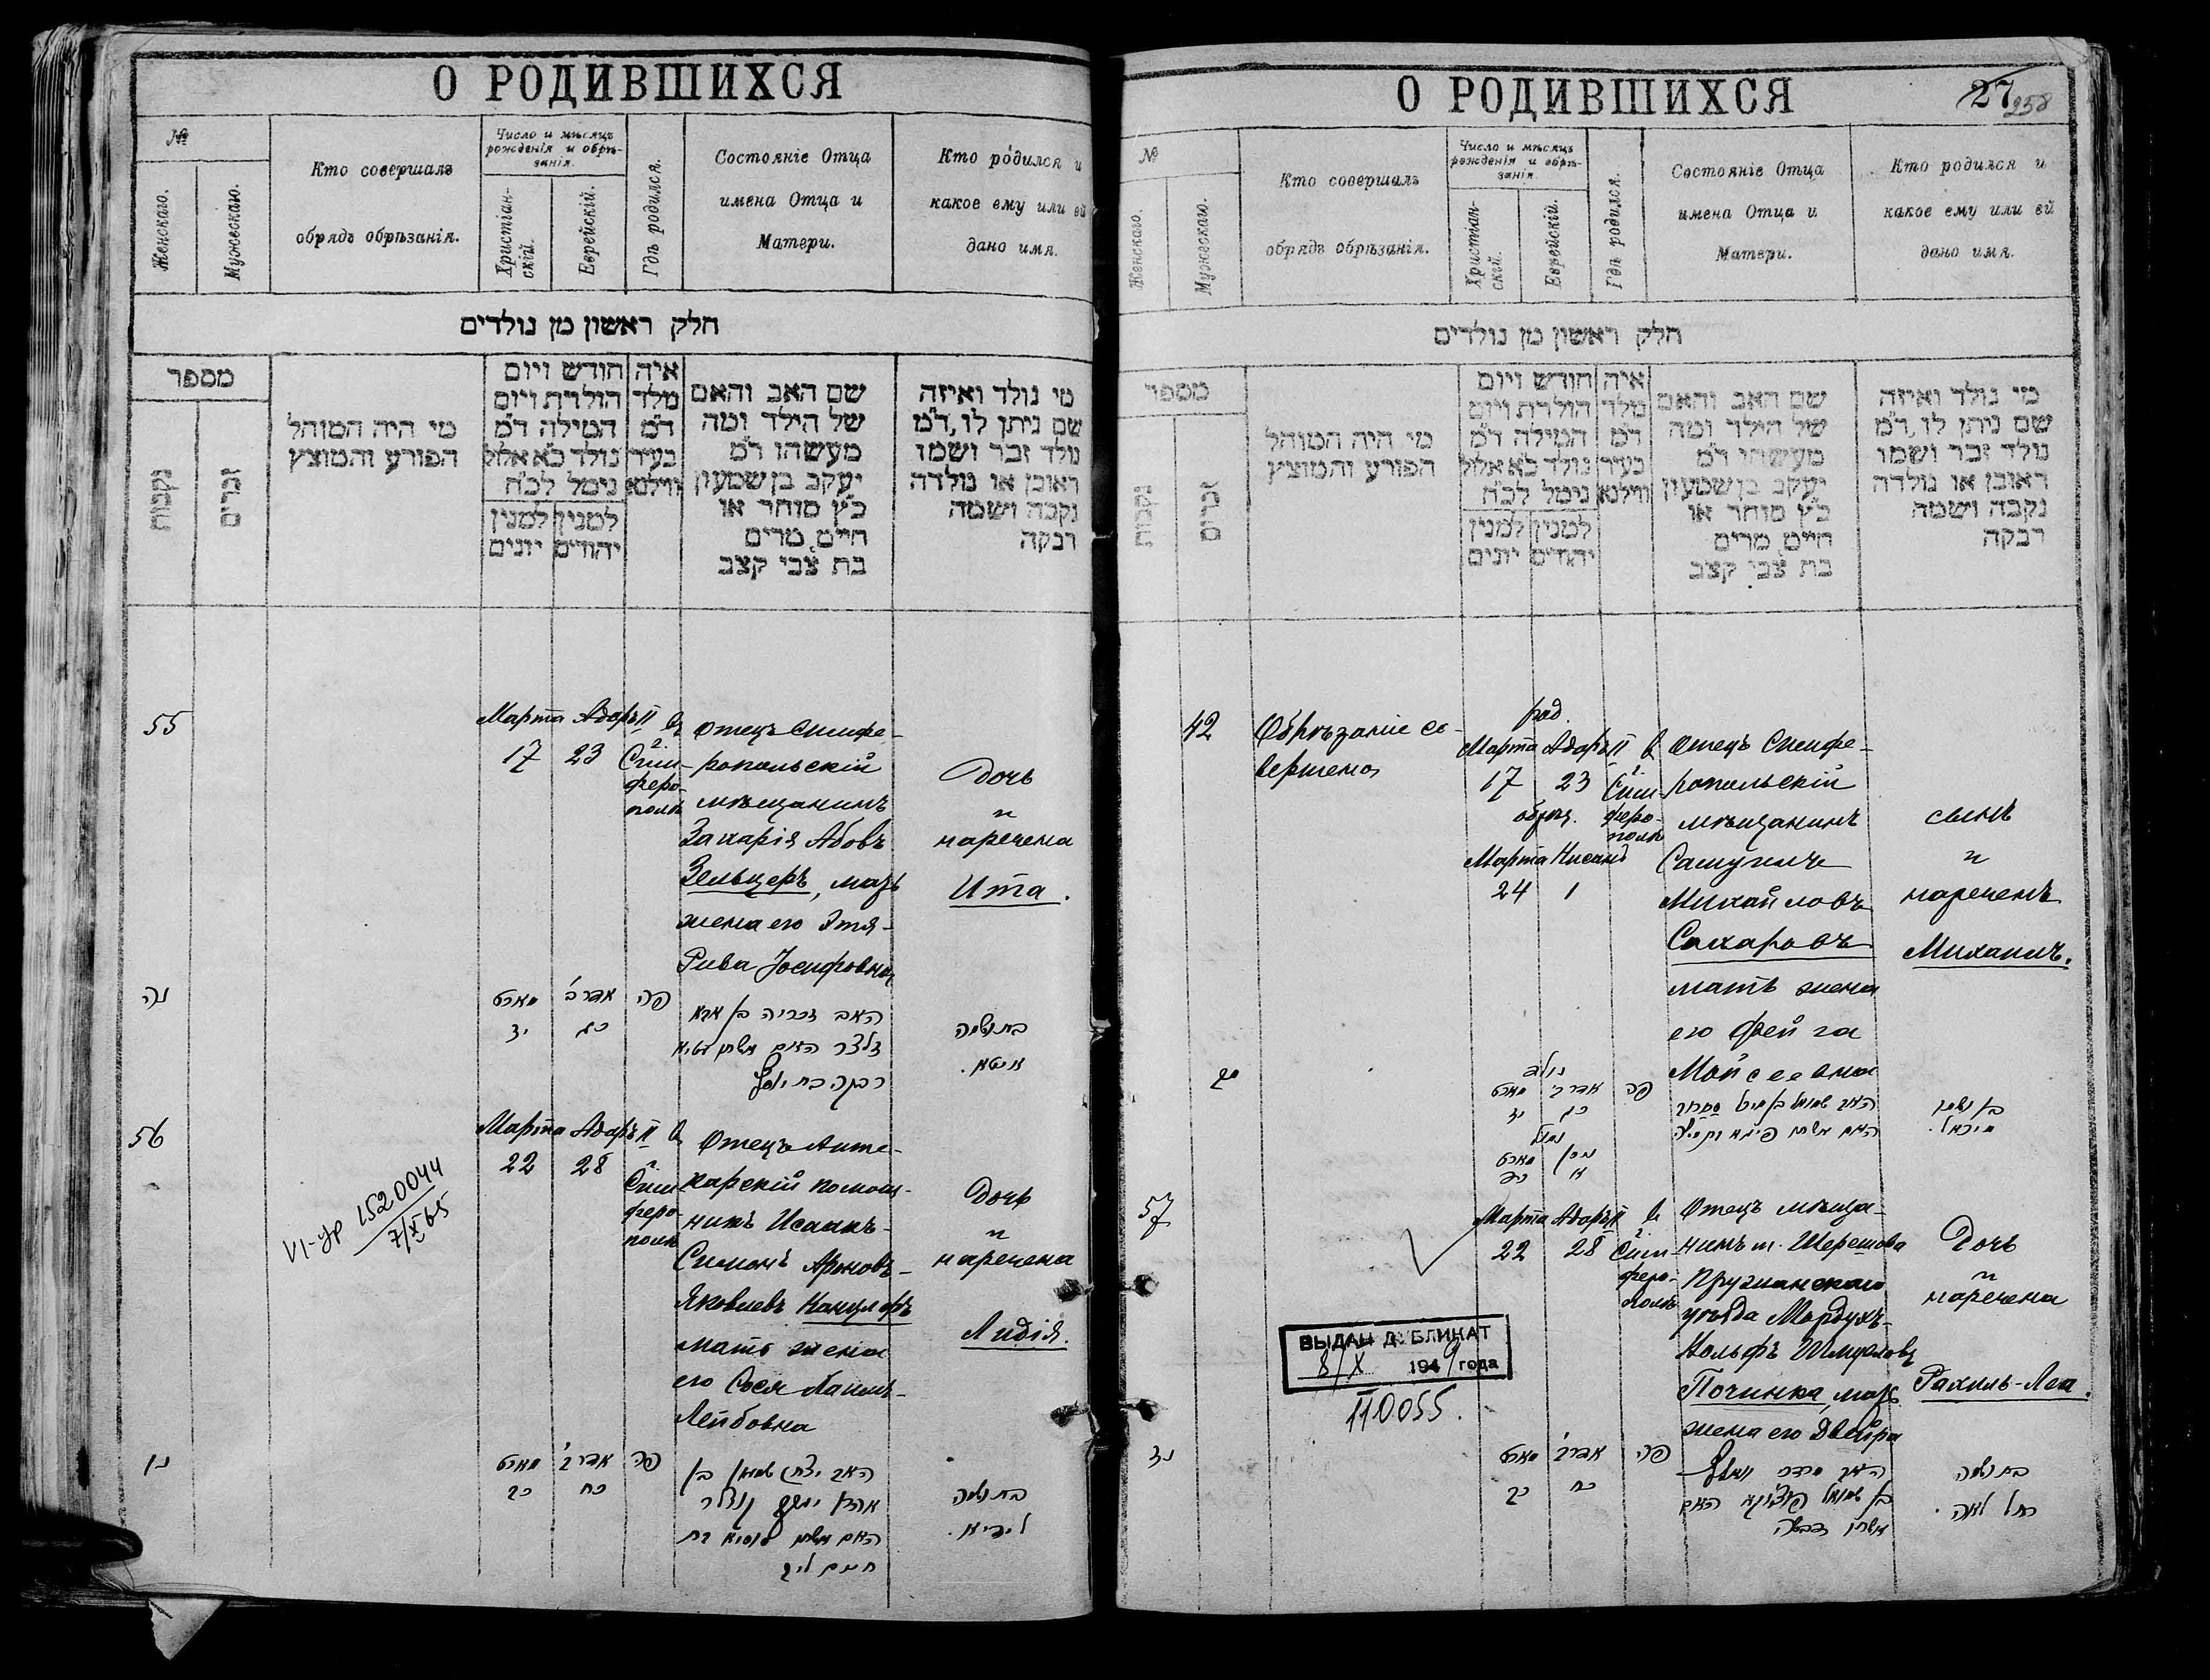 О РОДИВШИХСЯ
№
Женскаго.
Мужескаго.
Кто совершалъ
обрядъ обрѣзанія.
Число и мѣсяцъ
рожденія и обрѣ-
занія.
Христіан-
скій.
Еврейскій.
Гдѣ родился.
Состояніе Отца
имена Отца и
Матери.
Кто родился и
какое ему или ей
дано имя.
חלק ראשון מן נולדים
מספר
נקבות
זכרים
מי היה המוהל
הפורע והמוצץ
חודש ויום
הולדת ויום
המילה ד״מ
נולד כ״א אלול
נימל לכ״ח
למנין למנין
יהודים יונים
איה
מלד
ד״מ
בעיר
ווילנא
שם האב והאם
של הילד ומה
מעשהו ד״מ
יעקב בן שמעון
כ״ץ סוחר או
חייט מרים
בת צבי קצב
מי נולד ואיזה
שם ניתן לו, ד״מ
נולד זכר ושמו
ראובן או נולדה
נקבה ושמה
רבקה
55
Марта Адаръ II
17 23
в г. Сим-
феро-
полѣ
Отецъ Симфе-
ропольскій
мѣщанинъ
Захарія Абовъ
Зельцеръ, мать
жена его Этя-
Рива Іосифовна
Дочь
и
наречена
Ита.
נה
מארט אדר ב׳ פה
יז כג
האב זכריה בן אבא
זלצר האם אשתו עטיא
רבקה בת יוסף
בת ושמה
איטא.
56
Марта Адаръ II
22 28
в г. Сим-
феро-
полѣ
Отецъ Апте-
карскій помощ-
никъ Исаакъ-
Симонъ Ароновъ-
Яковлевъ Канцлеръ
мать жена
его Сося Хаимъ-
Лейбовна
Дочь
и
наречена
Лидія.
VI-УР 1520044
7/X 65
נו
מארט אדר ב׳ פה
כב כח
האב יצחק שמעון בן
אהרן יעקב קנצלר
האם אשתו סוסיא בת
חיים ליב
בת ושמה
לידיא.
О РОДИВШИХСЯ
27
258
№
Женскаго.
Мужескаго.
Кто совершалъ
обрядъ обрѣзанія.
Число и мѣсяцъ
рожденія и обрѣ-
занія.
Христіан-
скій.
Еврейскій.
Гдѣ родился.
Состояніе Отца
имена Отца и
Матери.
Кто родился и
какое ему или ей
дано имя.
חלק ראשון מן נולדים
מספר
נקבות
זכרים
מי היה המוהל
הפורע והמוצץ
חודש ויום
הולדת ויום
המילה ד״מ
נולד כ״א אלול
נימל לכ״ח
למנין למנין
יהודים יונים
איה
מלד
ד״מ
בעיר
ווילנא
שם האב והאם
של הילד ומה
מעשהו ד״מ
יעקב בן שמעון
כ״ץ סוחר או
חייט מרים
בת צבי קצב
מי נולד ואיזה
שם ניתן לו, ד״מ
נולד זכר ושמו
ראובן או נולדה
נקבה ושמה
רבקה
42
Обрѣзаніе со-
вершено
род.
Марта Адаръ II
17 23
обрѣз.
Марта Нисанъ
24 1
в г. Сим-
феро-
полѣ
Отецъ Симфе-
ропольскій
мѣщанинъ
Самуилъ
Михайловъ
Сахаровъ
мать жена
его Фейга
Мойсеевна
сынъ
и
нареченъ
Михаилъ.
מב
נולד
מארט אדר ב׳ פה
יז כג
נמול
מארט ניסן
כד א
בן ושמו
מיכאל.
57
Марта Адаръ II
22 28
в г. Сим-
феро-
полѣ
Отецъ мѣща-
нинъ м. Шерешова
Пружанскаго
уѣзда Мордухъ-
Вольфъ Шмуловъ
Починка, мать
жена его Двейра
Дочь
и
наречена
Рахиль-Леа.
ВЫДАН ДУБЛИКАТ
8/X 1949 года
110055.
נז
מארט אדר ב׳ פה
כב כח
האב מרדכי וואלף
בן שמואל פאצינקא האם
אשתו דבורה
בת ושמה
רחל לאה.